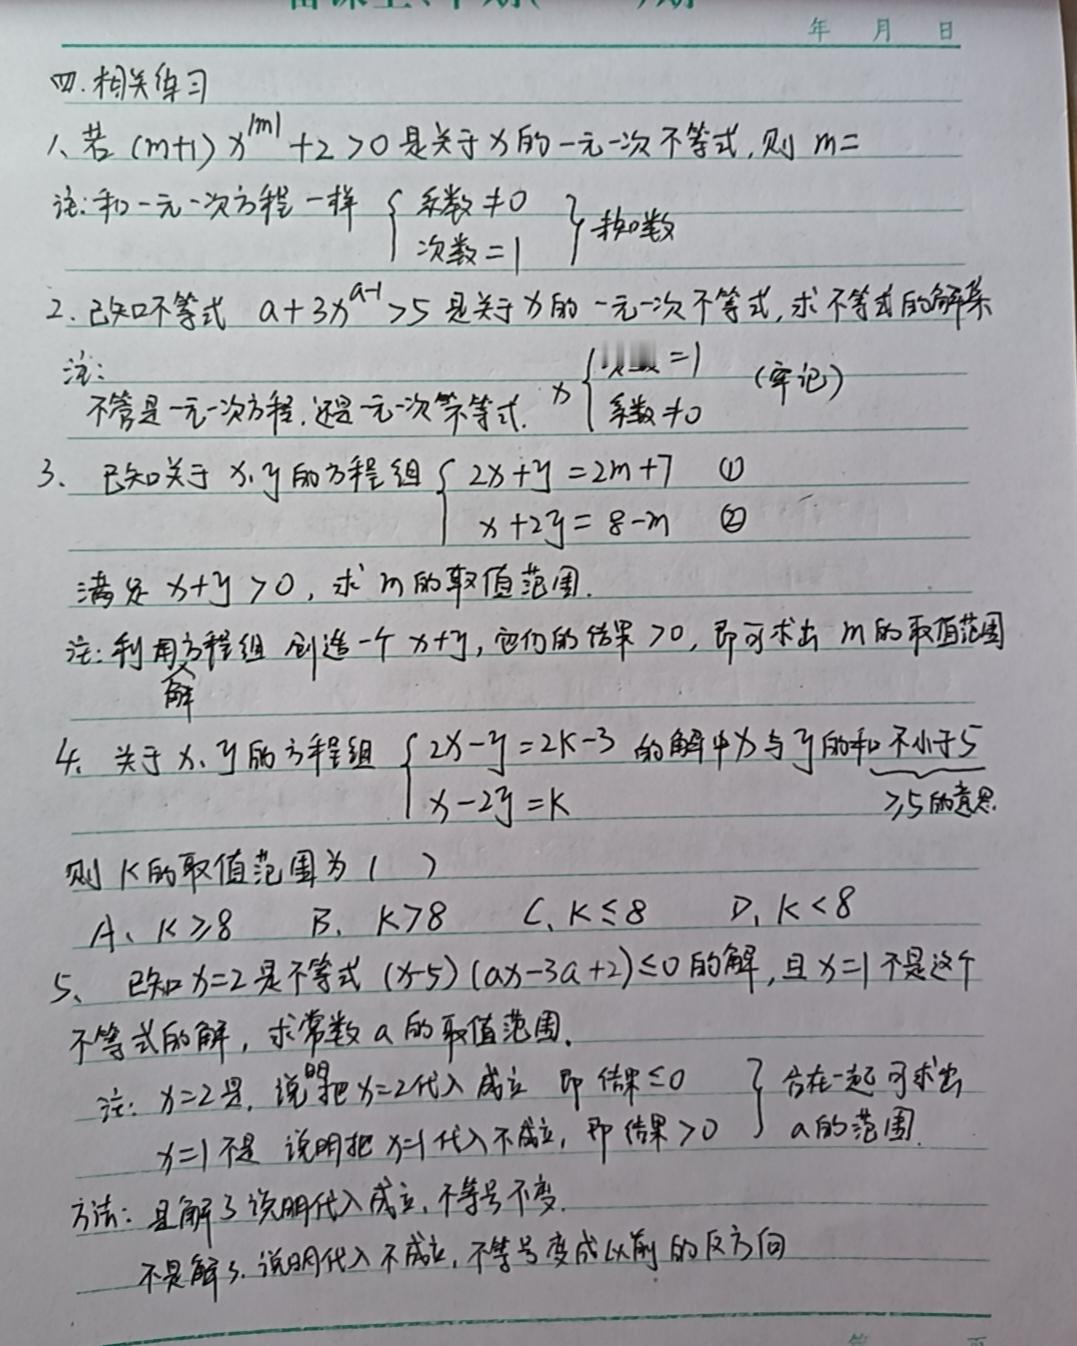 年 月 日
四.相关练习
1、若 (m+1) x^|m| +2 >0 是关于x的一元一次不等式,则 m=
注:和一元一次方程一样 { 系数≠0
次数=1 }
2.已知不等式 a+3x^(a-1) >5 是关于x的一元一次不等式,求不等式的解集
注:
不管是一元一次方程,还是一元一次不等式. x { =1
系数≠0 (牢记)
3、已知关于x、y的方程组 { 2x+y=2m+7 ①
x+2y=8-m ②
满足 x+y>0,求m的取值范围.
注:利用方程组 创造一个 x+y,它们的结果>0,即可求出 m的取值范围
解
4、关于x、y的方程组 { 2x-y=2k-3 的解中x与y的和不小于5
x-2y=k ≥5的意思
则 k的取值范围为( )
A、k≥8 B、k>8 C、k≤8 D、k<8
5、已知x=2是不等式 (x-5)(ax-3a+2)≤0的解,且x=1不是这个
不等式的解,求常数a的取值范围.
注:x=2是,说明把x=2代入成立 即结果≤0 } 合在一起可求出
x=1不是 说明把x=1代入不成立,即结果>0 a的范围.
方法:是解了说明代入成立,不等号不变.
不是解了.说明代入不成立,不等号变成以前的反方向